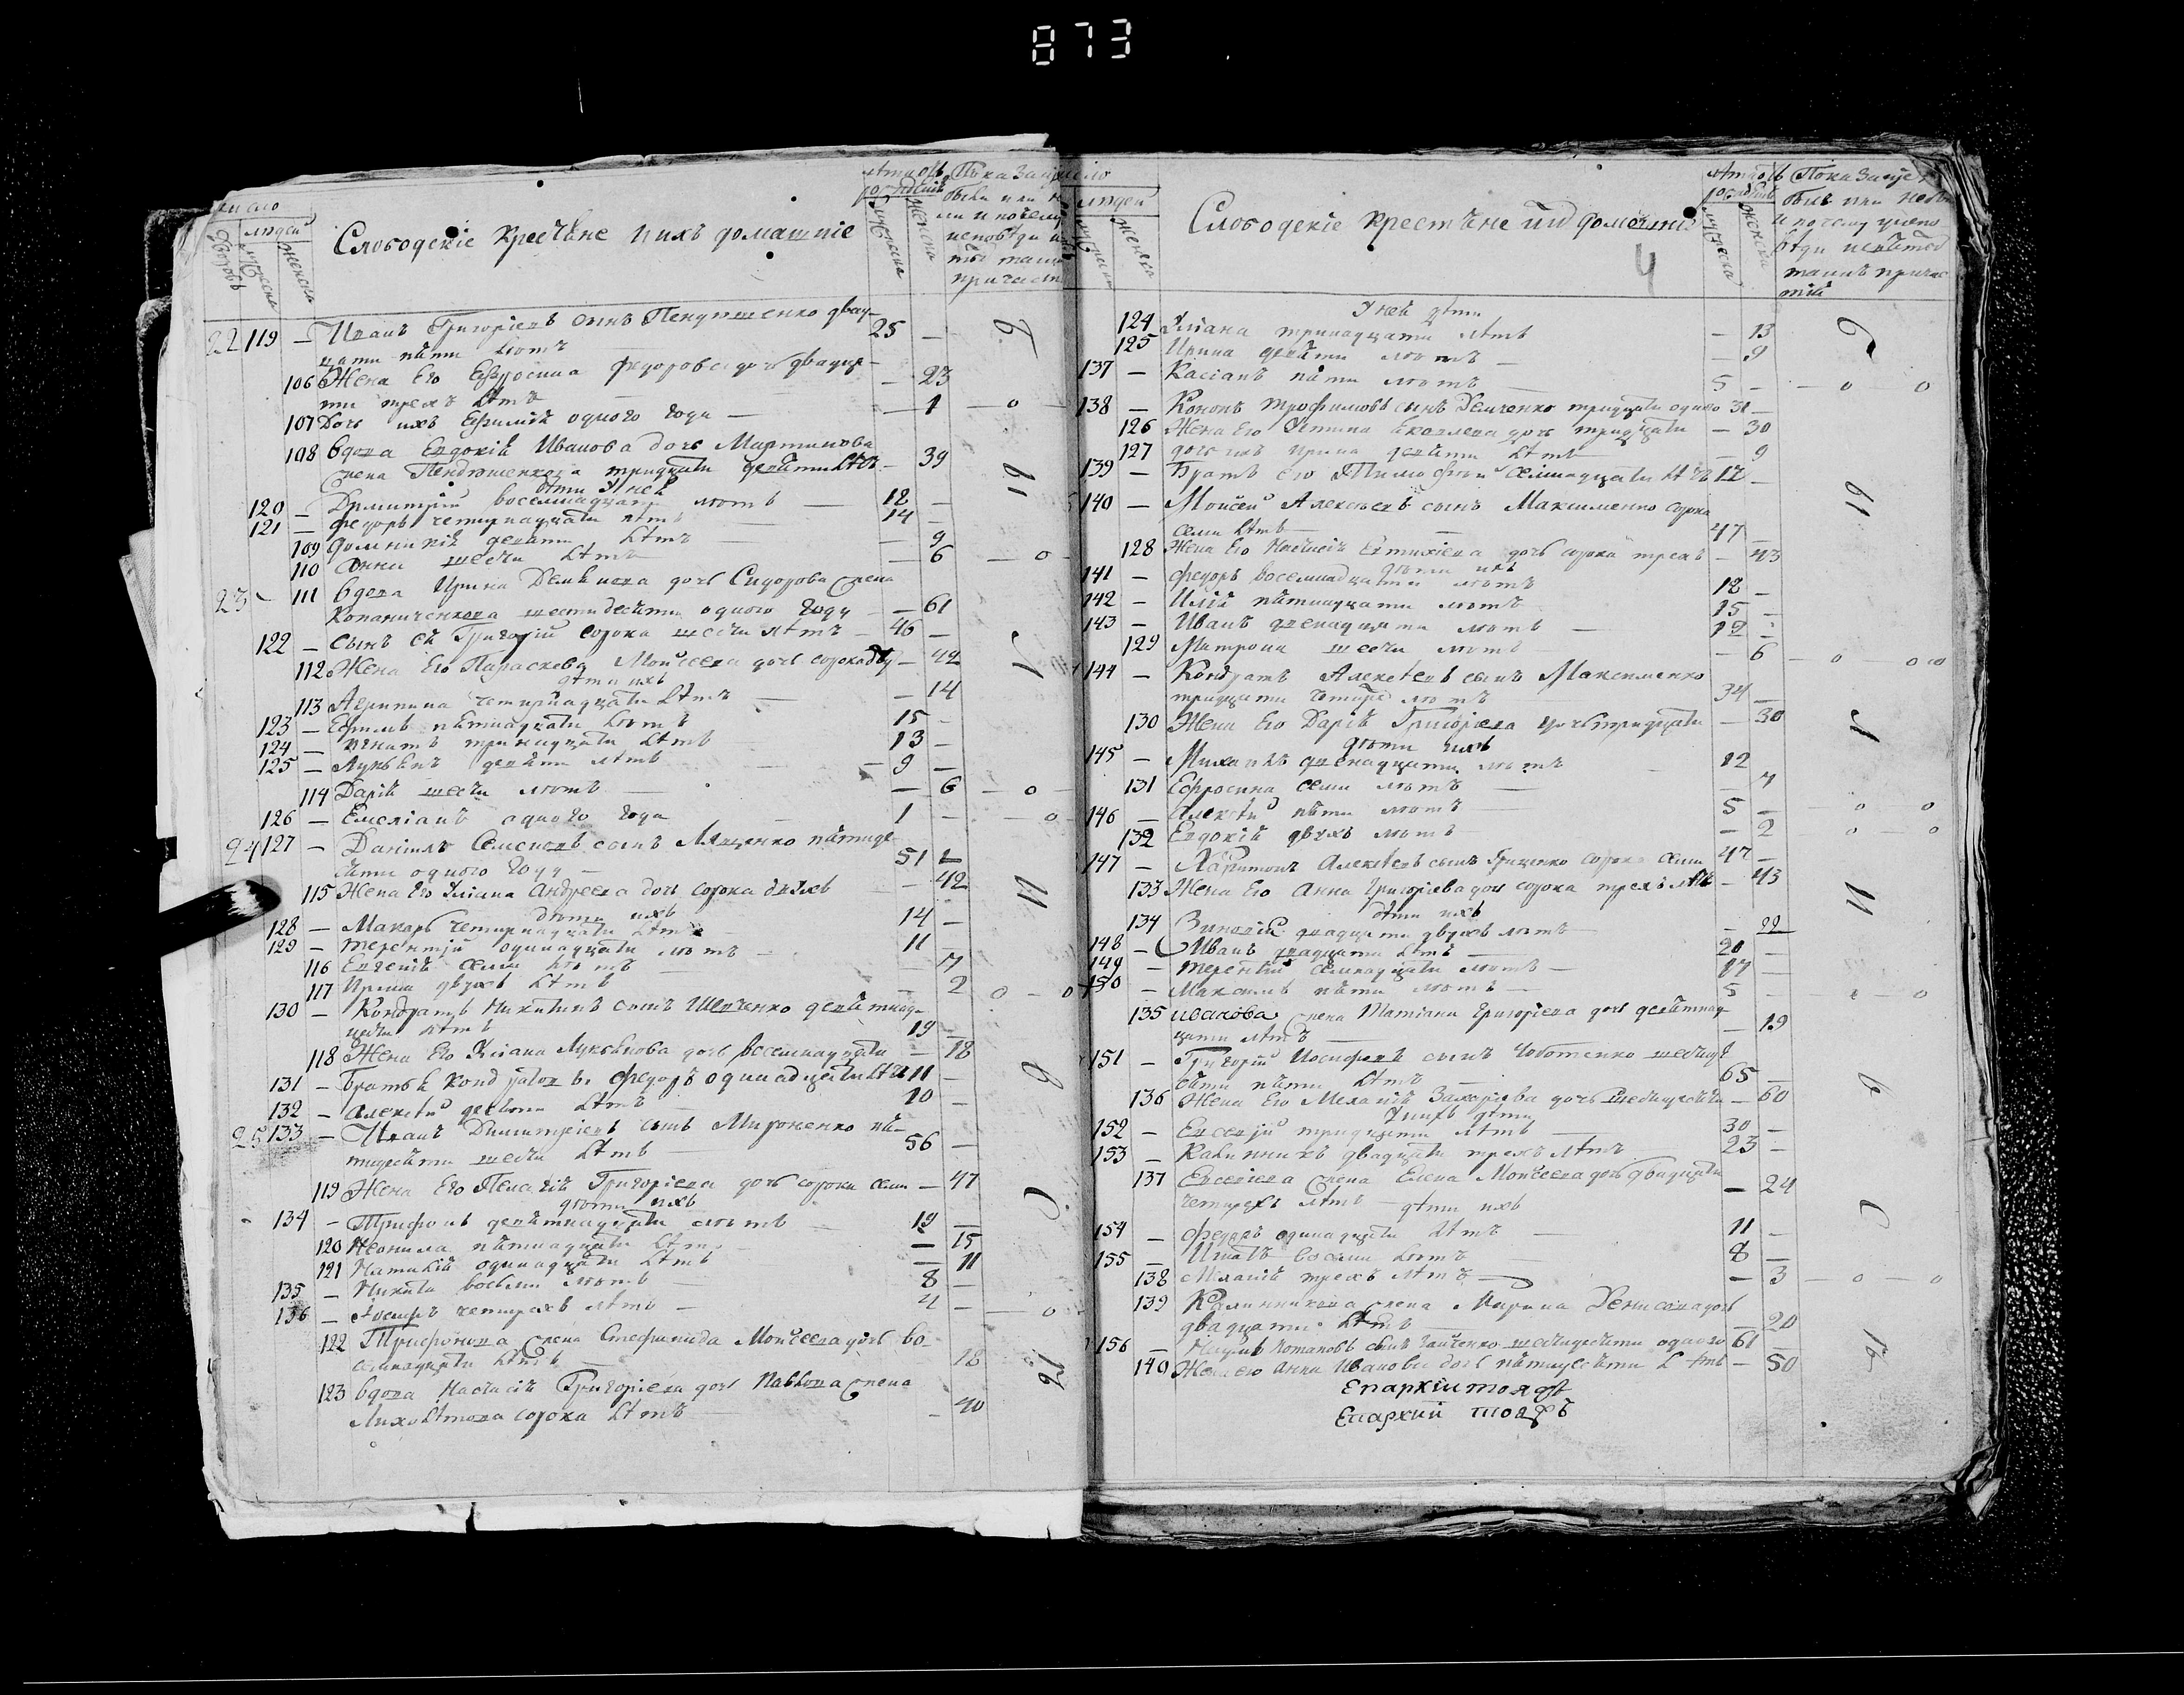 873
число
людей
Дворовъ
мужеска
женска
Слободскіе крестѣне и ихъ домашніе
мужеска
женска
22 119 – Иванъ Григоріевъ сынъ Пендюшенко двад-
цати пѣти лѣтъ 25 –
106 Жена Его Ефросина Федорова дочь двадца-
ти трехъ лѣтъ – 23
107 Дочь ихъ Ефимія одного года – 1 – о –
108 Вдова Евдокія Иванова дочь Мартинова
жена Пендюшенкова тридцати девѣти лѣтъ – 39
дѣти У неѣ
120 – Димитрій восемнадцати лѣтъ 18 –
121 – Федоръ четирнадцати лѣтъ 14 –
109 Домникія девѣти лѣтъ – 9
110 Анна шести лѣтъ – 6 – о –
23 – 111 Вдова Ирина Денисова дочь Сидорова жена
Копаниченкова шестидесѣти одного году – 61
122 – Сынъ еѣ Григорій сорока шести лѣтъ 46 –
112 Жена Его Параскева Моисеева дочь сорока дву – 42
дѣти ихъ
113 Агрипина четирнадцати лѣтъ – 14
123 – Ефимъ пѣтнадцати лѣтъ 15 –
124 – Игнатъ тринадцати лѣтъ 13 –
125 – Лукьѣнъ девѣти лѣтъ 9 –
114 Дарія шести лѣтъ – 6 – о –
126 – Емеліанъ одного года 1 – – о
24 127 – Даніилъ Семеновъ сынъ Ляшенко пѣтиде-
сѣти одного году 51 –
115 Жена Его Уліана Андреева дочь сорока двухъ – 42
дѣти ихъ
128 – Макаръ четирнадцати лѣтъ 14 –
129 – Терентій одинадцати лѣтъ 11 –
116 Евгенія семи лѣтъ – 7
117 Ирина двухъ лѣтъ – 2 о – о
130 – Кондратъ Никитинъ сынъ Шевченко девѣтнад-
цати лѣтъ 19 –
118 Жена Его Уліана Лукьѣнова дочь восемнадцати – 18
131 – Братьѣ Кондратовы Федоръ одинадцати лѣтъ 11 –
132 – Алексѣй десѣти лѣтъ 10 –
25 133 – Иванъ Димитріевъ сынъ Мироненко пѣ-
тидесѣти шести лѣтъ 56 –
119 Жена Его Пелагія Григоріева дочь сорока семи – 47
дѣти ихъ
134 – Трифонъ девѣтнадцати лѣтъ 19 –
120 Неонила пѣтнадцати лѣтъ – 15
121 Наталія одинадцати лѣтъ – 11
135 – Никита восьми лѣтъ 8 –
136 – Іосифъ четирехъ лѣтъ 4 – – о
122 Трифонова жена Стефанида Моисеева дочь во-
семнадцати лѣтъ 18
123 Вдова Настасія Григоріева дочь Павлова жена
Лихолѣтова сорока лѣтъ – 40
людей
женска
Слободскіе крестѣне и ихъ домашніе
4
мужеска
женска
У неѣ дѣти
124 Уліана тринадцати лѣтъ – 13
125 Ирина девѣти лѣтъ – 9
137 – Касіанъ пѣти лѣтъ 5 – – о – о
138 – Кононъ Трофимовъ сынъ Демченко тридцати одного 31 –
126 Жена Его Устина Яковлева дочь тридцати – 30
127 дочь ихъ Ирина девѣти лѣтъ – 9
139 – Братъ его Тимофей семнадцати лѣтъ 17 –
140 – Моисей Алексѣевъ сынъ Максименко сорока
семи лѣтъ 47 –
128 Жена Его Настасія Евтихіева дочь сорока трехъ – 43
дѣти ихъ
141 – Федоръ восемнадцати лѣтъ 18 –
142 – Илія пѣтнадцати лѣтъ 15 –
143 – Иванъ двенадцати лѣтъ 12 –
129 Матрона шести лѣтъ – 6 – о
144 – Кондратъ Алексѣевъ сынъ Максименко
тридцати четире лѣтъ 34 –
130 Жена Его Дарія Григоріева дочь тридцати – 30
дѣти ихъ
145 – Михаилъ двенадцати лѣтъ 12
131 Ефросина семи лѣтъ – 7
146 – Алексѣй пѣти лѣтъ 5 – – о о
132 Евдокія двухъ лѣтъ – 2 – о – о
147 – Харитонъ Алексѣевъ сынъ Гриценко сорока семи 47 –
133 Жена Его Анна Григоріева дочь сорока трехъ лѣтъ – 43
дѣти ихъ
134 Зиновія двадцати двухъ лѣтъ – 22
148 – Иванъ двадцати лѣтъ 20 –
149 – Терентій семнадцати лѣтъ 17 –
150 – Максимъ пѣти лѣтъ 5 – – о
135 Иванова жена Татіана Григоріева дочь девѣтнад-
цати лѣтъ – 19
151 – Григорій Иосифовъ сынъ Чоботенко шестиде-
сѣти пѣти лѣтъ 65 –
136 Жена Его Меланія Захаріева дочь шестидесѣти – 60
У нихъ дѣти
152 – Евсевій тридцати лѣтъ 30 –
153 – Калинникъ двадцати трехъ лѣтъ 23 –
137 Евсевіева жена Елена Моисеева дочь двадцати
четирехъ лѣтъ – 24
дѣти ихъ
154 – Федоръ одинадцати лѣтъ 11 –
155 – Игнатъ восми лѣтъ 8 –
138 Меланія трехъ лѣтъ – 3 – о – о
139 Калинникова жена Марина Денисова дочь
двадцати лѣтъ – 20
156 – Наумъ Потаповъ сынъ шестидесѣти одного 61
140 Жена его Анна Иванова дочь пѣтидесѣти лѣтъ – 50